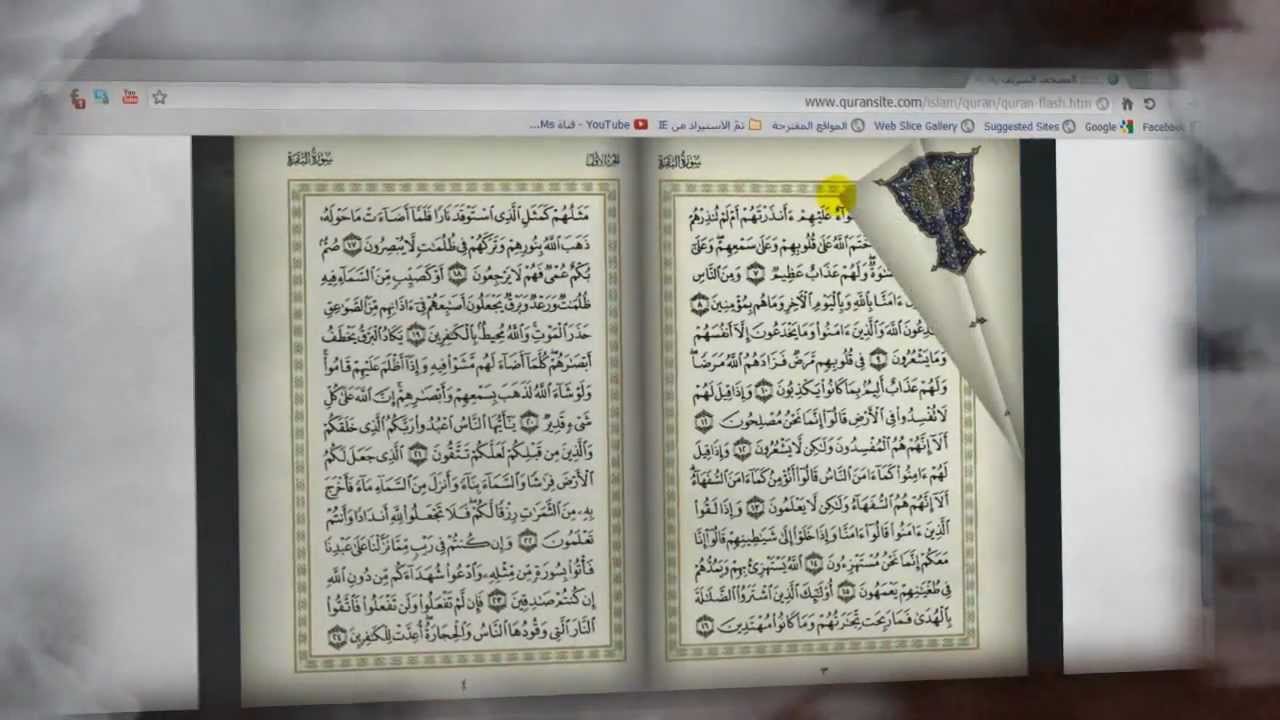 المصحف الشريف
www.quransite.com/islam/quran/quran-flash.htm
Facebook
Google
Suggested Sites
Web Slice Gallery
المواقع المقترحة
تمّ الاستيراد من IE
YouTube - قناة Ms...
You Tube
سورة البقرة
عَلَيْهِمْ ءَأَنذَرْتَهُمْ أَمْ لَمْ تُنذِرْهُمْ
خَتَمَ ٱللَّهُ عَلَىٰ قُلُوبِهِمْ وَعَلَىٰ سَمْعِهِمْ وَعَلَىٰٓ
وَلَهُمْ عَذَابٌ عَظِيمٌ ٧ وَمِنَ ٱلنَّاسِ
ءَامَنَّا بِٱللَّهِ وَبِٱلْيَوْمِ ٱلْءَاخِرِ وَمَا هُم بِمُؤْمِنِينَ ٨
ٱللَّهَ وَٱلَّذِينَ ءَامَنُوا۟ وَمَا يَخْدَعُونَ إِلَّآ أَنفُسَهُمْ
وَمَا يَشْعُرُونَ ٩ فِى قُلُوبِهِم مَّرَضٌ فَزَادَهُمُ ٱللَّهُ مَرَضًا
وَلَهُمْ عَذَابٌ أَلِيمٌۢ بِمَا كَانُوا۟ يَكْذِبُونَ ١٠ وَإِذَا قِيلَ لَهُمْ
لَا تُفْسِدُوا۟ فِى ٱلْأَرْضِ قَالُوٓا۟ إِنَّمَا نَحْنُ مُصْلِحُونَ ١١
أَلَآ إِنَّهُمْ هُمُ ٱلْمُفْسِدُونَ وَلَٰكِن لَّا يَشْعُرُونَ ١٢ وَإِذَا قِيلَ
لَهُمْ ءَامِنُوا۟ كَمَآ ءَامَنَ ٱلنَّاسُ قَالُوٓا۟ أَنُؤْمِنُ كَمَآ ءَامَنَ ٱلسُّفَهَآءُ
أَلَآ إِنَّهُمْ هُمُ ٱلسُّفَهَآءُ وَلَٰكِن لَّا يَعْلَمُونَ ١٣ وَإِذَا لَقُوا۟
ٱلَّذِينَ ءَامَنُوا۟ قَالُوٓا۟ ءَامَنَّا وَإِذَا خَلَوْا۟ إِلَىٰ شَيَٰطِينِهِمْ قَالُوٓا۟ إِنَّا
مَعَكُمْ إِنَّمَا نَحْنُ مُسْتَهْزِءُونَ ١٤ ٱللَّهُ يَسْتَهْزِئُ بِهِمْ وَيَمُدُّهُمْ
فِى طُغْيَٰنِهِمْ يَعْمَهُونَ ١٥ أُو۟لَٰٓئِكَ ٱلَّذِينَ ٱشْتَرَوُا۟ ٱلضَّلَٰلَةَ
بِٱلْهُدَىٰ فَمَا رَبِحَت تِّجَٰرَتُهُمْ وَمَا كَانُوا۟ مُهْتَدِينَ ١٦
٣
الجزء الأول
سورة البقرة
مَثَلُهُمْ كَمَثَلِ ٱلَّذِى ٱسْتَوْقَدَ نَارًا فَلَمَّآ أَضَآءَتْ مَا حَوْلَهُۥ
ذَهَبَ ٱللَّهُ بِنُورِهِمْ وَتَرَكَهُمْ فِى ظُلُمَٰتٍ لَّا يُبْصِرُونَ ١٧ صُمٌّۢ
بُكْمٌ عُمْىٌ فَهُمْ لَا يَرْجِعُونَ ١٨ أَوْ كَصَيِّبٍ مِّنَ ٱلسَّمَآءِ فِيهِ
ظُلُمَٰتٌ وَرَعْدٌ وَبَرْقٌ يَجْعَلُونَ أَصَٰبِعَهُمْ فِىٓ ءَاذَانِهِم مِّنَ ٱلصَّوَٰعِقِ
حَذَرَ ٱلْمَوْتِ وَٱللَّهُ مُحِيطٌۢ بِٱلْكَٰفِرِينَ ١٩ يَكَادُ ٱلْبَرْقُ يَخْطَفُ
أَبْصَٰرَهُمْ كُلَّمَآ أَضَآءَ لَهُم مَّشَوْا۟ فِيهِ وَإِذَآ أَظْلَمَ عَلَيْهِمْ قَامُوا۟
وَلَوْ شَآءَ ٱللَّهُ لَذَهَبَ بِسَمْعِهِمْ وَأَبْصَٰرِهِمْ إِنَّ ٱللَّهَ عَلَىٰ كُلِّ
شَىْءٍ قَدِيرٌ ٢٠ يَٰٓأَيُّهَا ٱلنَّاسُ ٱعْبُدُوا۟ رَبَّكُمُ ٱلَّذِى خَلَقَكُمْ
وَٱلَّذِينَ مِن قَبْلِكُمْ لَعَلَّكُمْ تَتَّقُونَ ٢١ ٱلَّذِى جَعَلَ لَكُمُ
ٱلْأَرْضَ فِرَٰشًا وَٱلسَّمَآءَ بِنَآءً وَأَنزَلَ مِنَ ٱلسَّمَآءِ مَآءً فَأَخْرَجَ
بِهِۦ مِنَ ٱلثَّمَرَٰتِ رِزْقًا لَّكُمْ فَلَا تَجْعَلُوا۟ لِلَّهِ أَندَادًا وَأَنتُمْ
تَعْلَمُونَ ٢٢ وَإِن كُنتُمْ فِى رَيْبٍ مِّمَّا نَزَّلْنَا عَلَىٰ عَبْدِنَا
فَأْتُوا۟ بِسُورَةٍ مِّن مِّثْلِهِۦ وَٱدْعُوا۟ شُهَدَآءَكُم مِّن دُونِ ٱللَّهِ
إِن كُنتُمْ صَٰدِقِينَ ٢٣ فَإِن لَّمْ تَفْعَلُوا۟ وَلَن تَفْعَلُوا۟ فَٱتَّقُوا۟
ٱلنَّارَ ٱلَّتِى وَقُودُهَا ٱلنَّاسُ وَٱلْحِجَارَةُ أُعِدَّتْ لِلْكَٰفِرِينَ ٢٤
٤